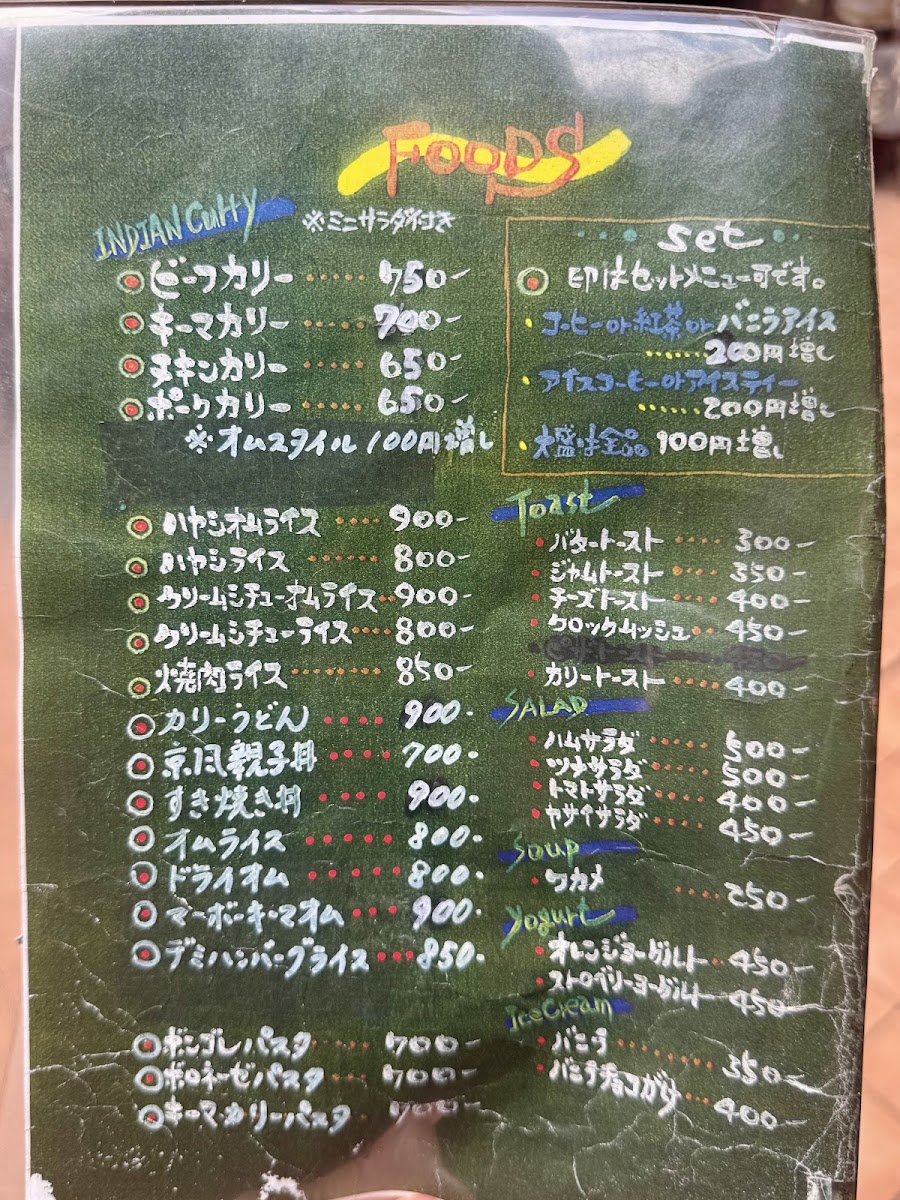 FOODS
INDIAN Curry ※ミニサラダ付き
ビーフカリー ・・・・・ 750-
キーマカリー ・・・・ 700-
チキンカリー ・・・・ 650-
ポークカリー ・・・・ 650-
※オムスタイル 100円増し
ハヤシオムライス ・・・・ 900-
ハヤシライス ・・・・・ 800-
クリームシチューオムライス・・900-
クリームシチューライス・・・・800-
焼肉ライス ・・・・・ 850-
カリーうどん ・・・・ 900-
京風親子丼 ・・・・ 700-
すき焼き丼 ・・・・ 900-
オムライス ・・・・・ 800-
ドライオム ・・・・・ 800-
マーボーキーマオム ・・・ 900-
デミハンバーグライス ・・・ 850-
ボンゴレパスタ ・・・ 700-
ボロネーゼパスタ ・・・ 700-
キーマカリーパスタ ・・ 700-
Set
印はセットメニュー可です。
・コーヒーor紅茶orバニラアイス
・・・・・・200円増し
・アイスコーヒーorアイスティー
・・・・・・200円増し
・大盛は全品 100円増し
Toast
・バタートースト ・・・・・ 300-
・ジャムトースト ・・・・・ 350-
・チーズトースト ・・・・ 400-
・クロックムッシュ・・ 450-
・カリートースト ・・・・・ 400-
SALAD
・ハムサラダ ・・・・・ 500-
・ツナサラダ ・・・・・ 500-
・トマトサラダ ・・・・ 400-
・ヤサイサラダ ・・・・ 450-
Soup
・ワカメ ・・・・・ 250-
Yogurt
・オレンジヨーグルト・・ 450-
・ストロベリーヨーグルト 450-
IceCream
・バニラ ・・・・・・・ 350-
・バニラチョコがけ ・・・ 400-